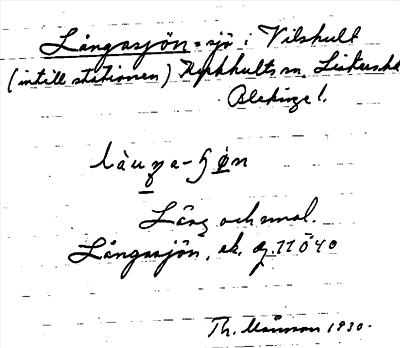 Långasjön = sjö i Vilshult
(intill stationen) Kyrkhults sn. Listers hd
Blekinge l.
Lång och smal.
Långasjön, ek. 11040
Th. Månsson 1930.